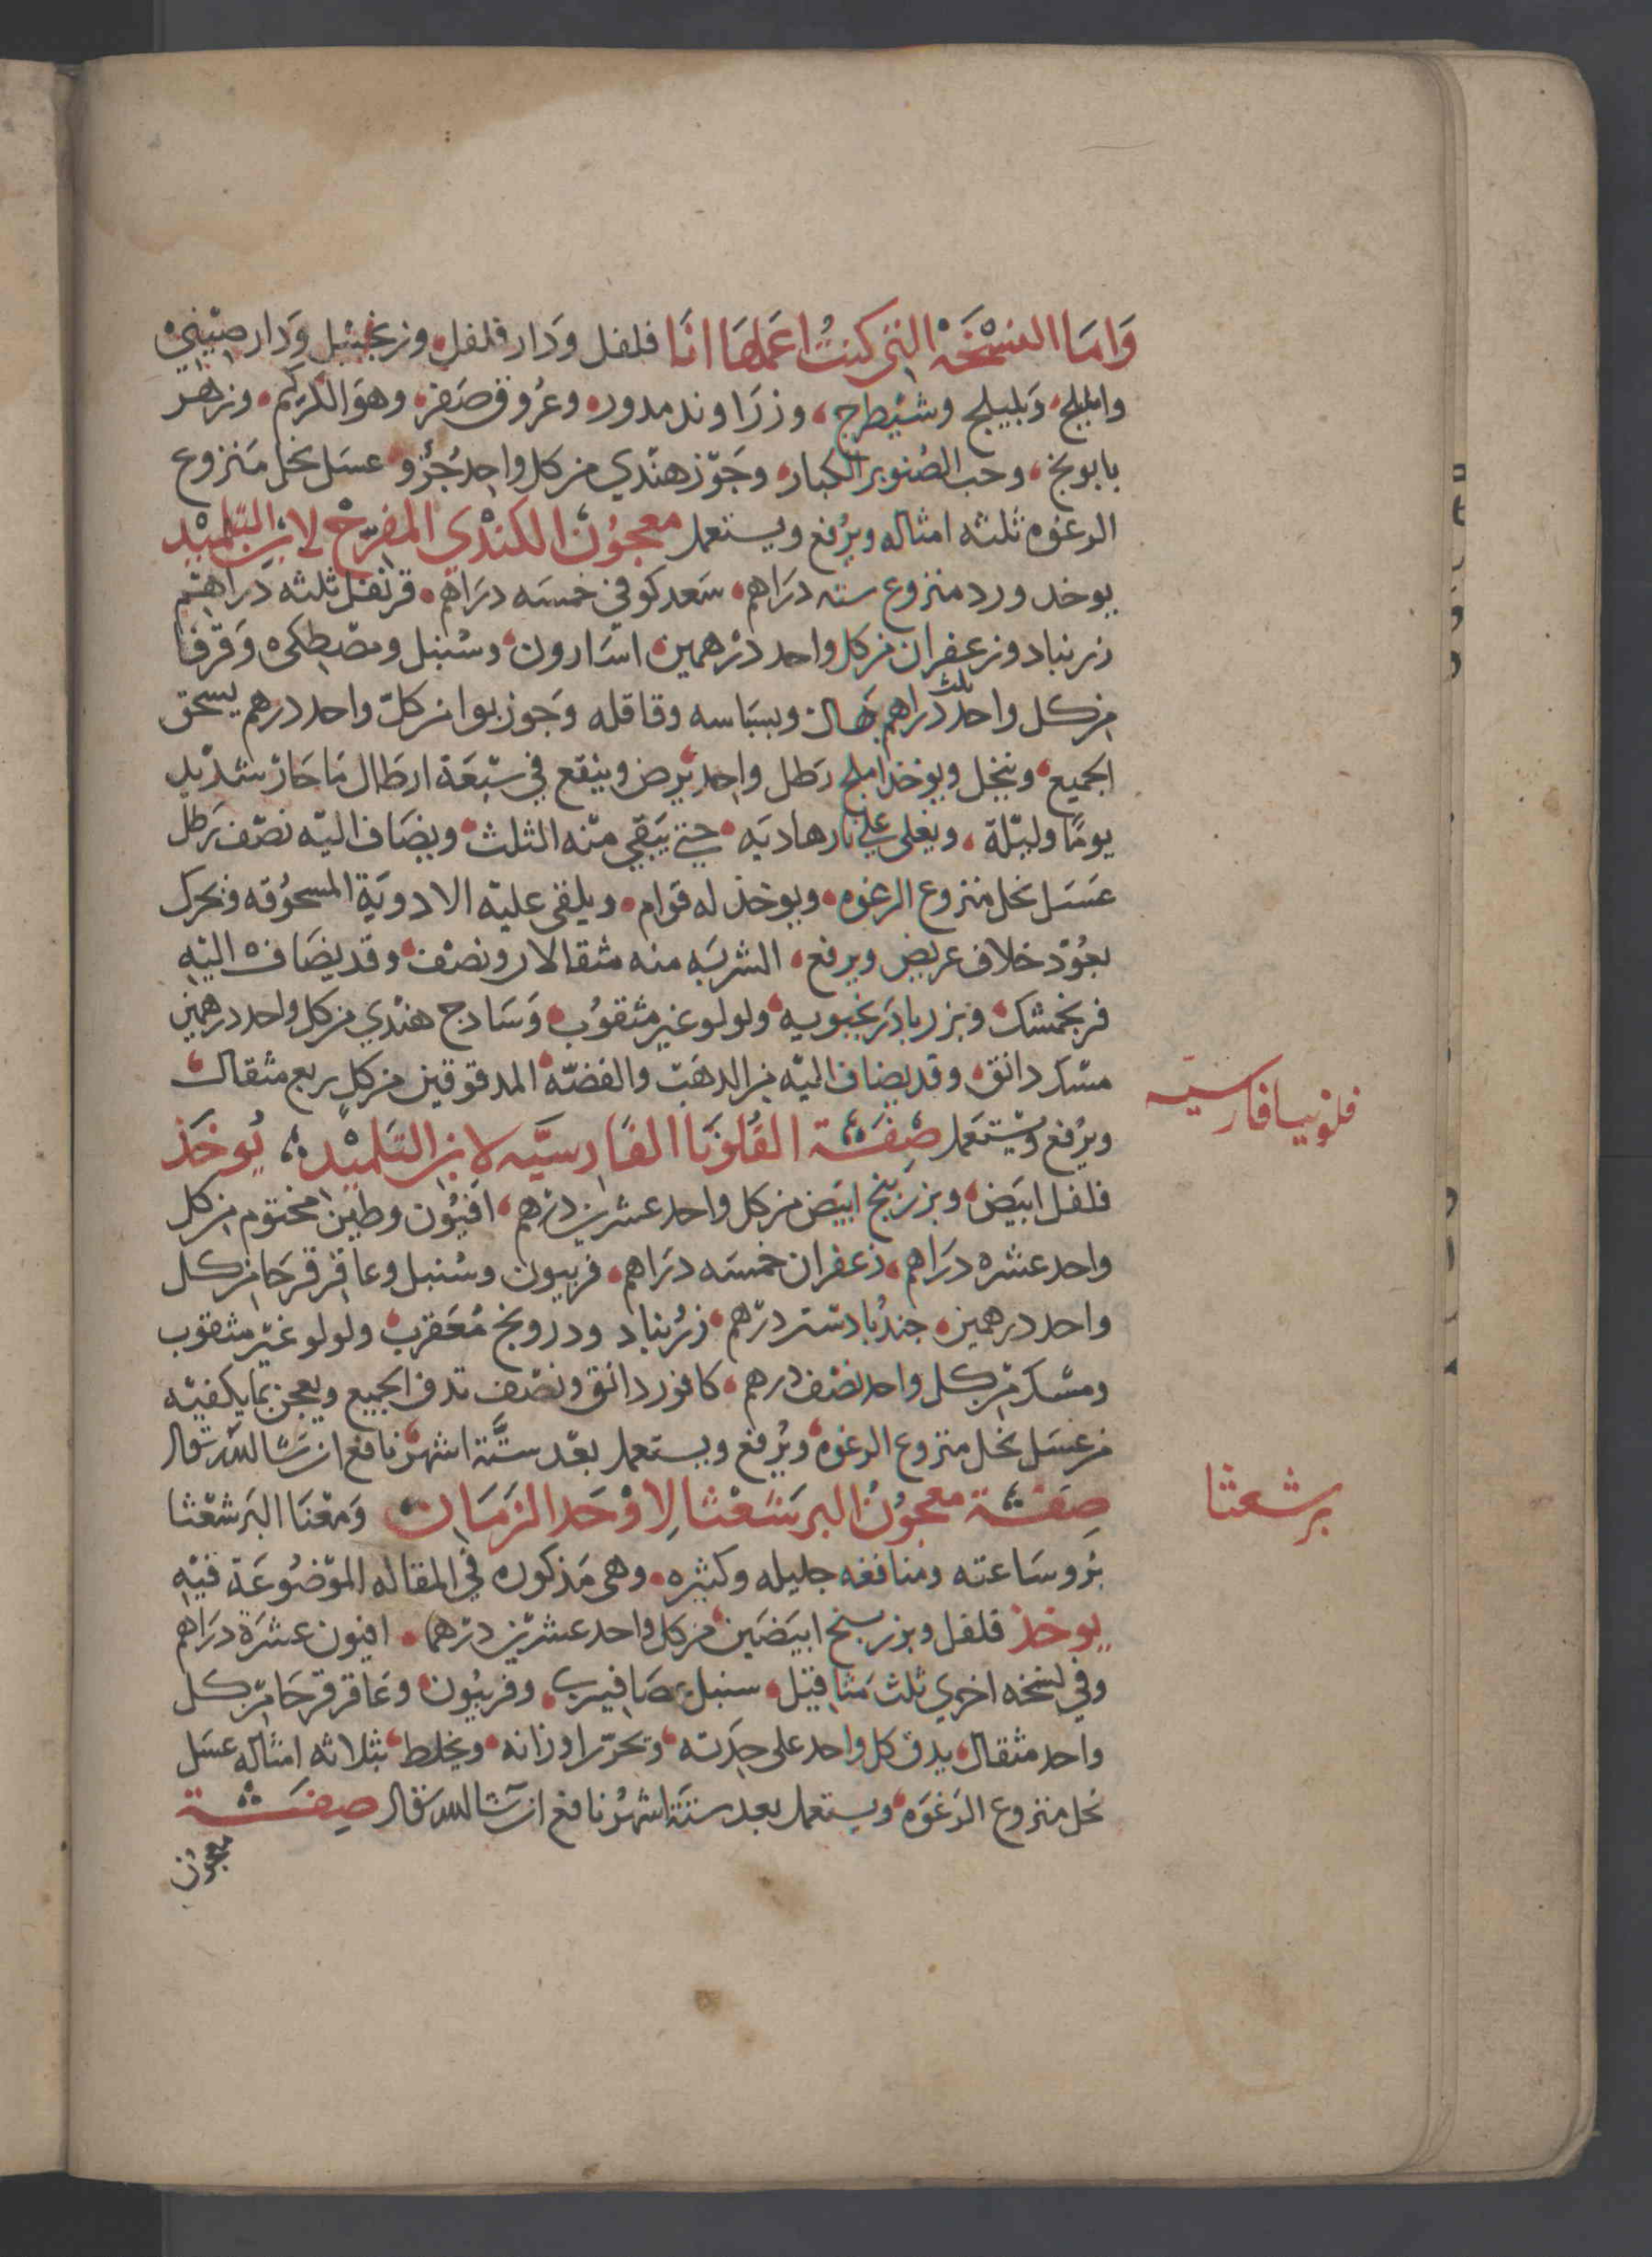 وَامَا النسْخَة التي كنتُ اعَملهَا انَا فلفل وَدار فلفل وزنجبيْل وَدار صيْنيْ
واملج وَبليلج وشيْطرج وزرَاوند مدور وعُروق صَفر وهوَ الكركم وزهر
بابونج وحب الصُنوبر الكبار وجَوْز هنْدي من كل واحد جُزْو عسَل نحل مَنزوع
الرغوه ثلثه امثاله ويرْفع ويستعمل معجوُن الكنْدي المفرّح لابن التلميْد
يوخد ورد منزوع سته درَاهم سَعد كوفي خمسَه درَاهم قرنفل ثلثه دَراهم
زرنباد وزعفران من كل واحد درْهمين اسَارون وسُنبل ومصْطكى وَقرفا
من كل واحد ثلث درَاهم هَال وبسبَاسه وقاقله وَجوز بوا من كلّ واحد درهم يسحق
الجميع وينخل ويوخذ املج رَطل واحد يُرض وينقع في سَبْعَة ارطَال مَا حَار شَديْد
يومًا وليْلة ويغلى علي نار هاديَه حتي يَبَقي منْه الثلث ويضَاف اليْه نصْف رَطل
عَسَل نحل منزوع الرغوه ويوخذ له قوَام ويلقى عليْه الادويَة المسحُوقه ونحرك
بعُوْد خلاف عريض ويرفع الشربَه منه مثقالان ونصْف وقد يضَاف اليْه
فرنجمشك وبزر بادرنجبويه ولولو غير مثقوُب وَسَادج هنْدي من كل واحد درهمين
مسْك دانق وقد يضاف اليْه من الدهَب والفضّه المدقوقين من كل ربع مثقال
ويرْفع ويسْتعمَل صِفَة الفُلونيَا الفَارسيَّه لابن التَلميْد يُوخَذ
فلفل ابيَض وبزر بنج ابيَض من كل واحد عشرين درْهم افيُون وطين مختوم من كل
واحد عشره درَاهم زعفران خمسَه درَاهم فربيون وسُنبل وعاقر قرحَا من كل
واحد درهمين جندُبادستر درْهم زرُنباد ودرونج مُعَقرب ولولو غيْر مثقوب
ومسْك منْ كل واحد نصْف درهم كافور دانق ونصْف تدق الجميع ويعجن بما يكفيْه
من عسَل نحل منزوع الرغوه ويُرفع ويستعمل بعْد ستَّة اشهر نافع ان شَا الله تعَالى
صِفَة معجوُن البرشَعْثا لِاوْحَد الزمَان وَمعْنَا البَرشعْثا
بَرو سَاعته ومنافعه جليله وكثيره وهى مَذكوره في المقاله الموْضُوعَة فيْه
يوخذ فلفل وبزر بنج ابيَضَين من كل واحد عشريْن درْهما افيون عشرَة درَاهم
وفي نسخه اخري ثلث مَثاقيْل سنبل عصَافيرى وفربيُون وعَاقر قرحَا منْ كل
واحد مثقال يدق كل واحد على حِدَته وتحرّر اوزانه ويخلط بثلاثه امثاله عسَل
نحل منزوع الرَغوَه ويستعمل بعد ستة اشهُر نافع ان شا الله تعَالى صِفَة
معجون
فلونيا فارسيه
برشعثا